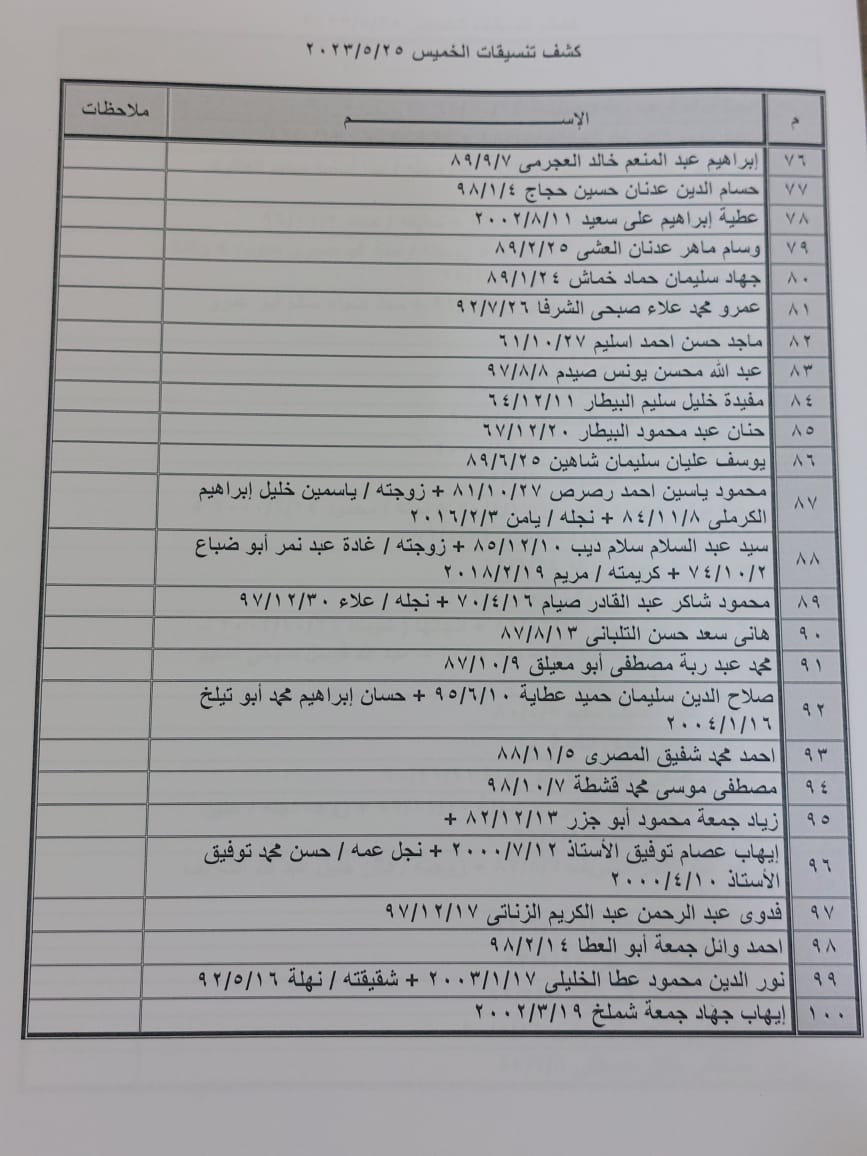 كشف تنسيقات الخميس ٢٠٢٣/٥/٢٥
م الإســـــــــــم ملاحظات
٧٦ إبراهيم عبد المنعم خالد العجرمى ٨٩/٩/٧
٧٧ حسام الدين عدنان حسين حجاج ٩٨/١/٤
٧٨ عطية إبراهيم على سعيد ٢٠٠٢/٨/١١
٧٩ وسام ماهر عدنان العشى ٨٩/٢/٢٥
٨٠ جهاد سليمان حماد خماش ٨٩/١/٢٤
٨١ عمرو محمد علاء صبحى الشرفا ٩٢/٧/٢٦
٨٢ ماجد حسن احمد اسليم ٦١/١٠/٢٧
٨٣ عبد الله محسن يونس صيدم ٩٧/٨/٨
٨٤ مفيدة خليل سليم البيطار ٦٤/١٢/١١
٨٥ حنان عبد محمود البيطار ٦٧/١٢/٢٠
٨٦ يوسف عليان سليمان شاهين ٨٩/٦/٢٥
٨٧ محمود ياسين احمد رصرص ٨١/١٠/٢٧ + زوجته / ياسمين خليل إبراهيم
الكرملى ٨٤/١١/٨ + نجله / يامن ٢٠١٦/٢/٣
٨٨ سيد عبد السلام سلام ديب ٨٥/١٢/١٠ + زوجته / غادة عبد نمر أبو ضباع
٧٤/١٠/٢ + كريمته / مريم ٢٠١٨/٢/١٩
٨٩ محمود شاكر عبد القادر صيام ٧٠/٤/١٦ + نجله / علاء ٩٧/١٢/٣٠
٩٠ هانى سعد حسن التلبانى ٨٧/٨/١٣
٩١ محمد عبد ربة مصطفى أبو معيلق ٨٧/١٠/٩
٩٢ صلاح الدين سليمان حميد عطاية ٩٥/٦/١٠ + حسان إبراهيم محمد أبو تيلخ
٢٠٠٤/١/١٦
٩٣ احمد محمد شفيق المصرى ٨٨/١١/٥
٩٤ مصطفى موسى محمد قشطة ٩٨/١٠/٧
٩٥ زياد جمعة محمود أبو جزر ٨٢/١٢/١٣ +
٩٦ إيهاب عصام توفيق الأستاذ ٢٠٠٠/٧/١٢ + نجل عمه / حسن محمد توفيق
الأستاذ ٢٠٠٠/٤/١٠
٩٧ فدوى عبد الرحمن عبد الكريم الزناتى ٩٧/١٢/١٧
٩٨ احمد وائل جمعة أبو العطا ٩٨/٢/١٤
٩٩ نور الدين محمود عطا الخليلى ٢٠٠٣/١/١٧ + شقيقته / نهلة ٩٢/٥/١٦
١٠٠ إيهاب جهاد جمعة شملخ ٢٠٠٢/٣/١٩